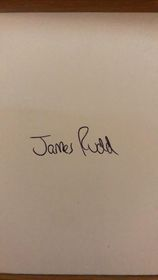 James Rudd